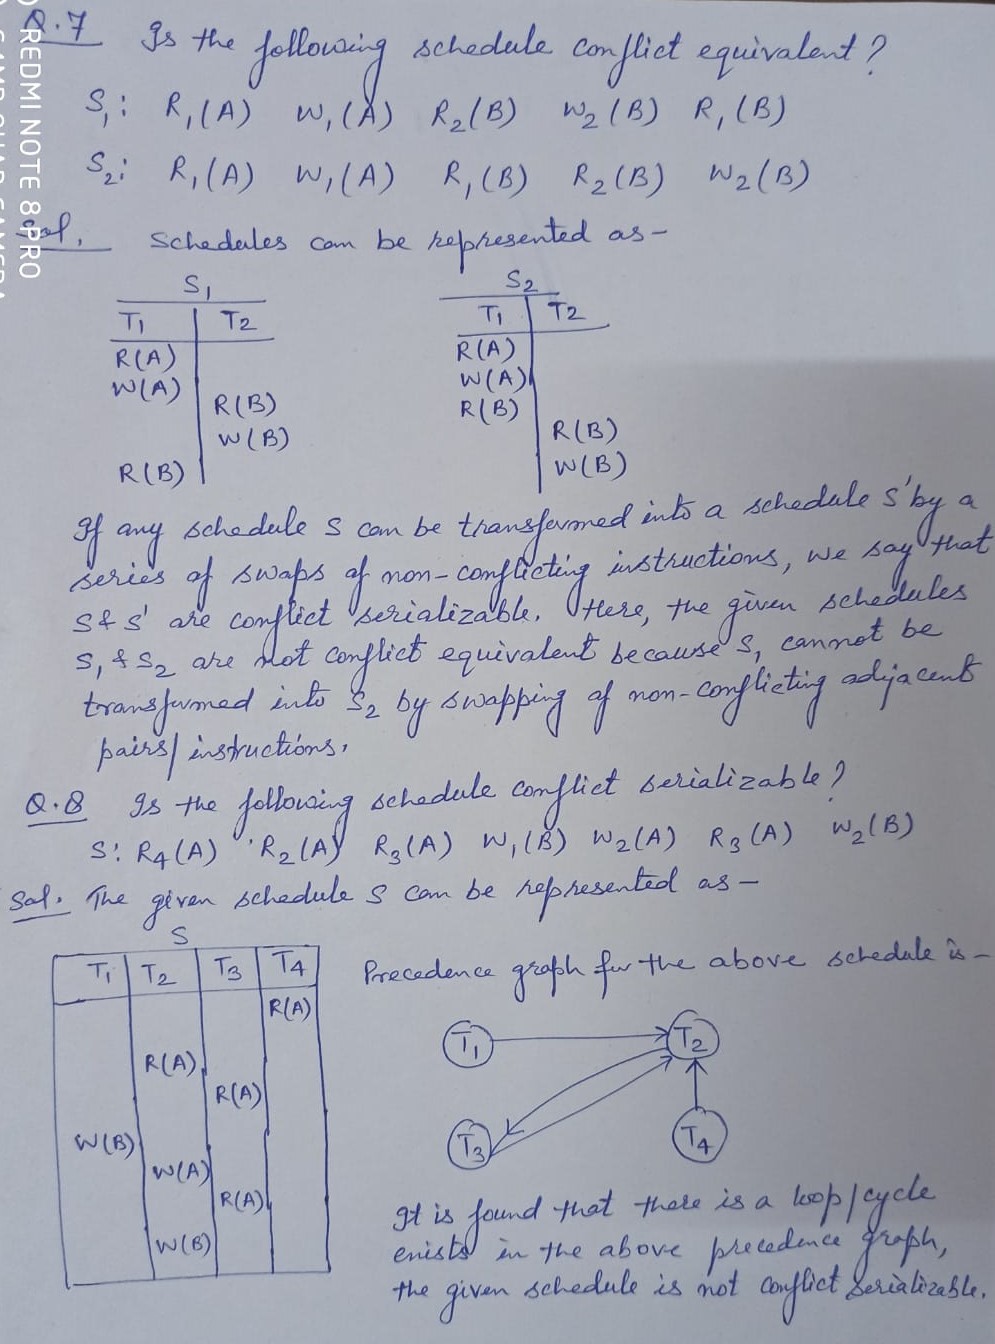 REDMI NOTE 8 PRO
Q.7 Is the following schedule conflict equivalent?
S₁: R₁(A) W₁(A) R₂(B) W₂(B) R₁(B)
S₂: R₁(A) W₁(A) R₁(B) R₂(B) W₂(B)
Sol. Schedules can be represented as –
S₁
T₁ T₂
R(A)
W(A)
R(B)
W(B)
R(B)
S₂
T₁ T₂
R(A)
W(A)
R(B)
R(B)
W(B)
If any schedule S can be transformed into a schedule S' by a
series of swaps of non-conflicting instructions, we say that
S & S' are conflict serializable. Here, the given schedules
S₁ & S₂ are not conflict equivalent because S₁ cannot be
transformed into S₂ by swapping of non-conflicting adjacent
pairs/instructions.
Q.8 Is the following schedule conflict serializable?
S: R₄(A) R₂(A) R₃(A) W₁(B) W₂(A) R₃(A) W₂(B)
Sol. The given schedule S can be represented as –
S
T₁ T₂ T₃ T₄
R(A)
R(A)
R(A)
W(B)
W(A)
R(A)
W(B)
Precedence graph for the above schedule is –
T₁ T₂
T₃ T₄
It is found that there is a loop/cycle
enists in the above precedence graph,
the given schedule is not conflict serializable.